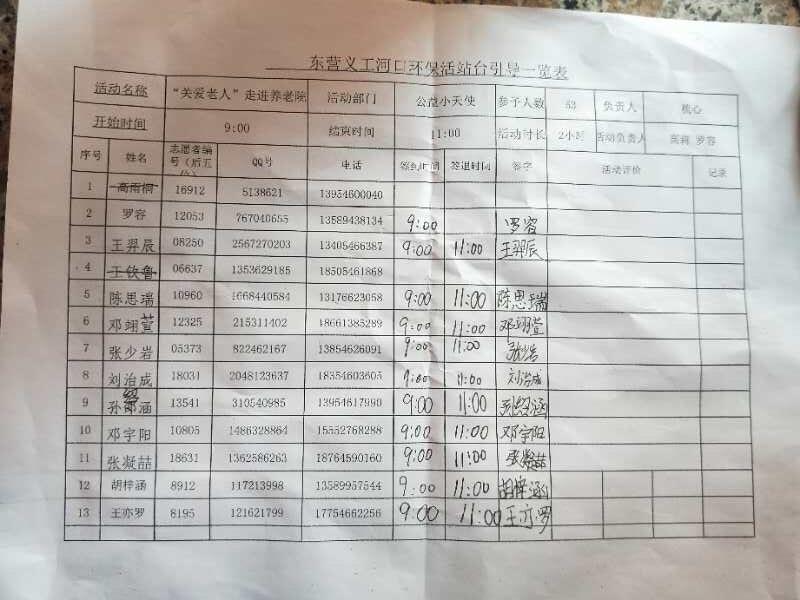 东营义工河口环保活站台引导一览表
活动名称 “关爱老人”走进养老院 活动部门 公益小天使 参予人数 53 负责人 桃心
开始时间 9:00 结束时间 11:00 活动时长 2小时 活动负责人 罗容
序号 姓名 志愿者编号（后五位） QQ号 电话 签到时间 签退时间 签字 活动评价 记录
1 高雨桐 16912 5138621 13954600040
2 罗容 12053 767040655 13589438134 9:00 罗容
3 王羿辰 08250 2567270203 13405466387 9:00 11:00 王羿辰
4 王钦鲁 06637 1353629185 18505461868
5 陈思瑞 10960 1668440584 13176623058 9:00 11:00 陈思瑞
6 邓翊萱 12325 215311402 18661385289 9:00 11:00 邓翊萱
7 张少岩 05373 822462167 13854626091 9:00 11:00
8 刘治成 18031 2048123637 18354603605 9:00 11:00 刘治成
9 孙 涵 13541 310540985 13954617990 9:00 11:00 孙绍涵
10 邓宇阳 10805 1486328864 15552768288 9:00 11:00 邓宇阳
11 张凝喆 18631 1362586263 18764590160 9:00 11:00 张凝喆
12 胡梓涵 8912 117213998 13589957544 9:00 11:00 胡梓涵
13 王亦罗 8195 121621799 17754662256 9:00 11:00 王亦罗